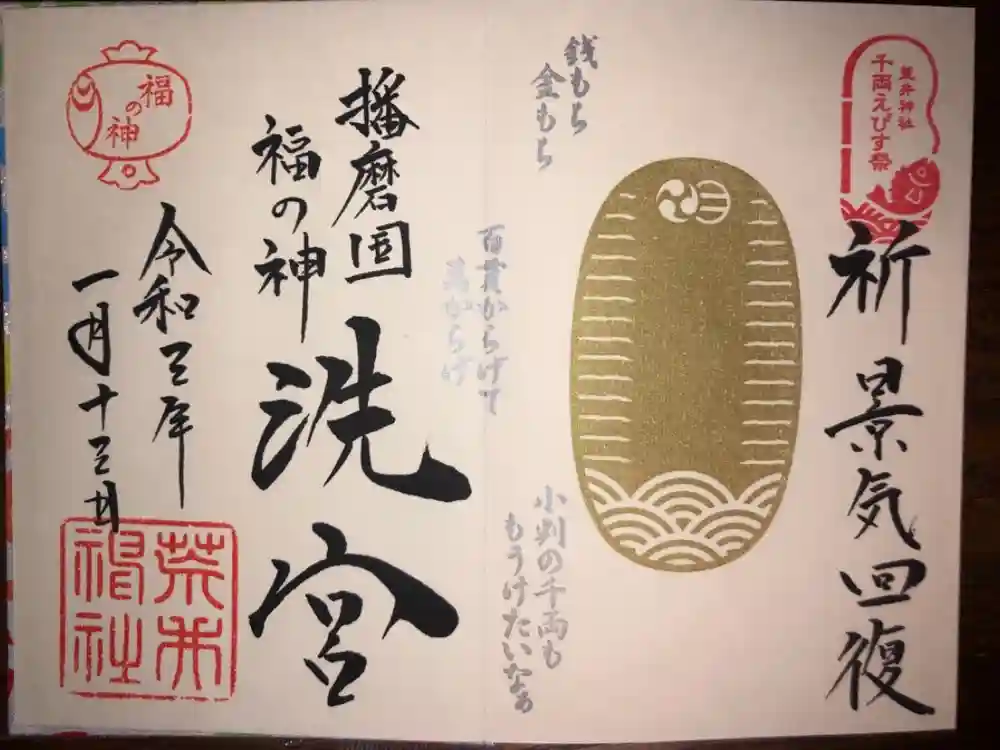 荒井神社
千両えびす祭
祈景気回復
銭もち
金もち
百貫からげて
萬からげ
小判の千両も
もうけたいなぁ
播磨国
福の神
洗宮
福の神
令和三年
一月十三日
荒井
神社